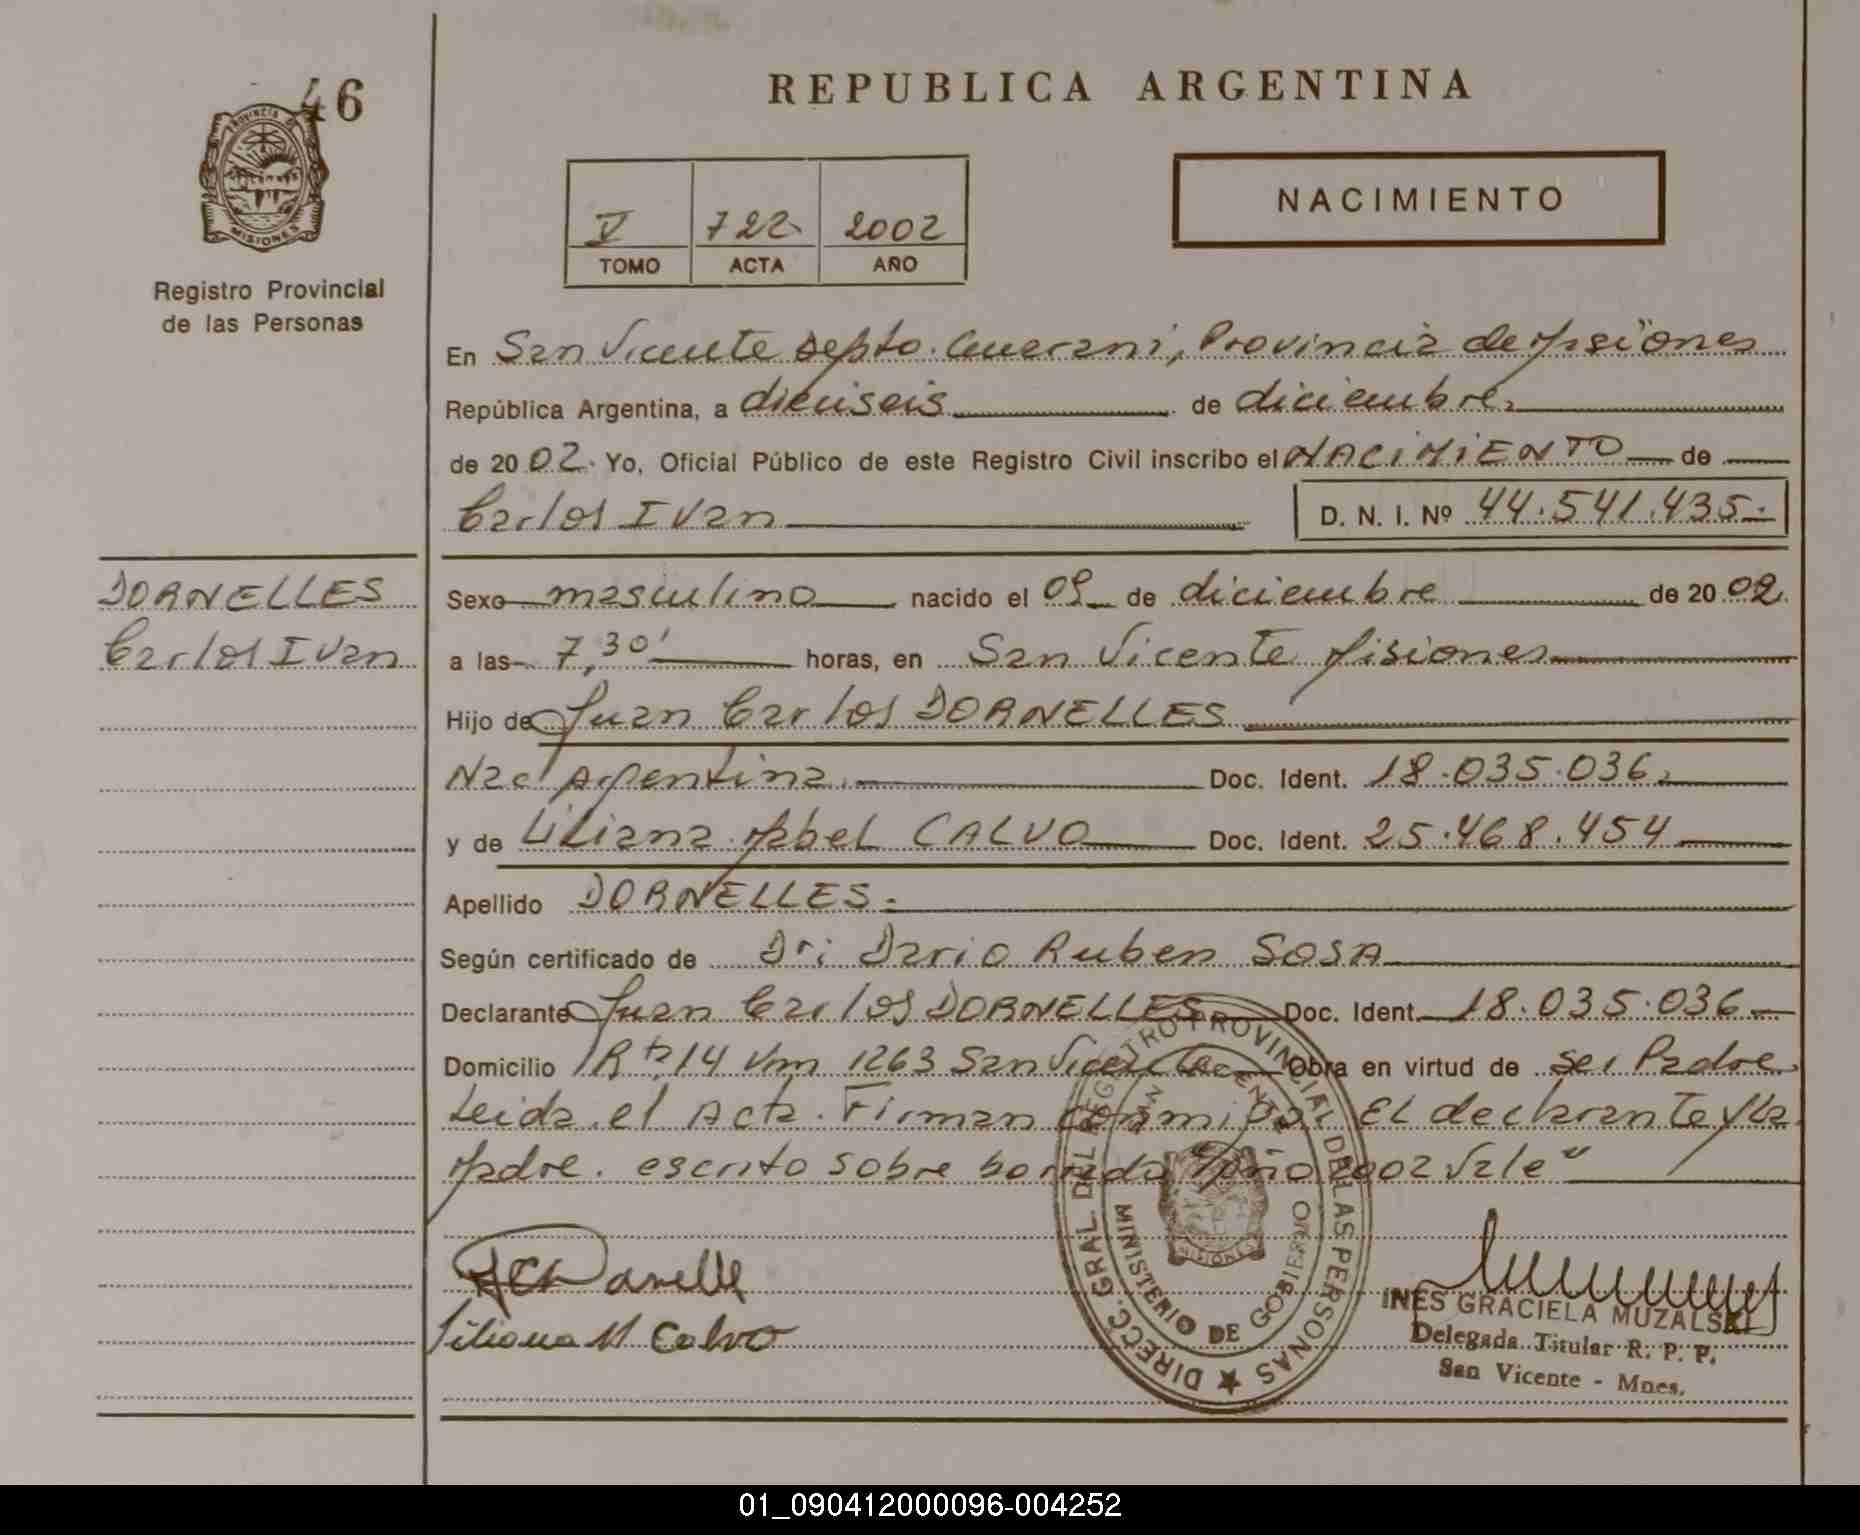 46
REPUBLICA ARGENTINA
PROVINCIA DE
MISIONES
Registro Provincial
de las Personas
V 722 2002
TOMO ACTA AÑO
NACIMIENTO
En San Vicente Depto. Guarani, Provincia de Misiones
República Argentina, a dieciseis de diciembre
de 2002. Yo, Oficial Público de este Registro Civil inscribo el NACIMIENTO de
Carlos Ivan D. N. I. Nº 44.541.435.-
DORNELLES
Carlos Ivan
Sexo masculino nacido el 09 de diciembre de 2002
a las 7,30' horas, en San Vicente Misiones
Hijo de Juan Carlos DORNELLES
Nac. Argentina. Doc. Ident. 18.035.036
y de Liliana Mabel CALVO Doc. Ident. 25.468.454
Apellido DORNELLES.-
Según certificado de Dr: Dario Ruben SOSA
Declarante Juan Carlos DORNELLES Doc. Ident. 18.035.036
Domicilio Rta 14 Km 1263 San Vicente Obra en virtud de ser Padre
Leida el Acta. Firman conmigo El declarante y la
Madre. escrito sobre borrado "Año 2002 Vale"
DIRECC. GRAL. DEL REGISTRO PROVINCIAL DE LAS PERSONAS
MINISTERIO DE GOBIERNO
SAN VICENTE
MISIONES
Liliana M Calvo
INES GRACIELA MUZALSKI
Delegada Titular R. P. P.
San Vicente - Mnes.
01_090412000096-004252